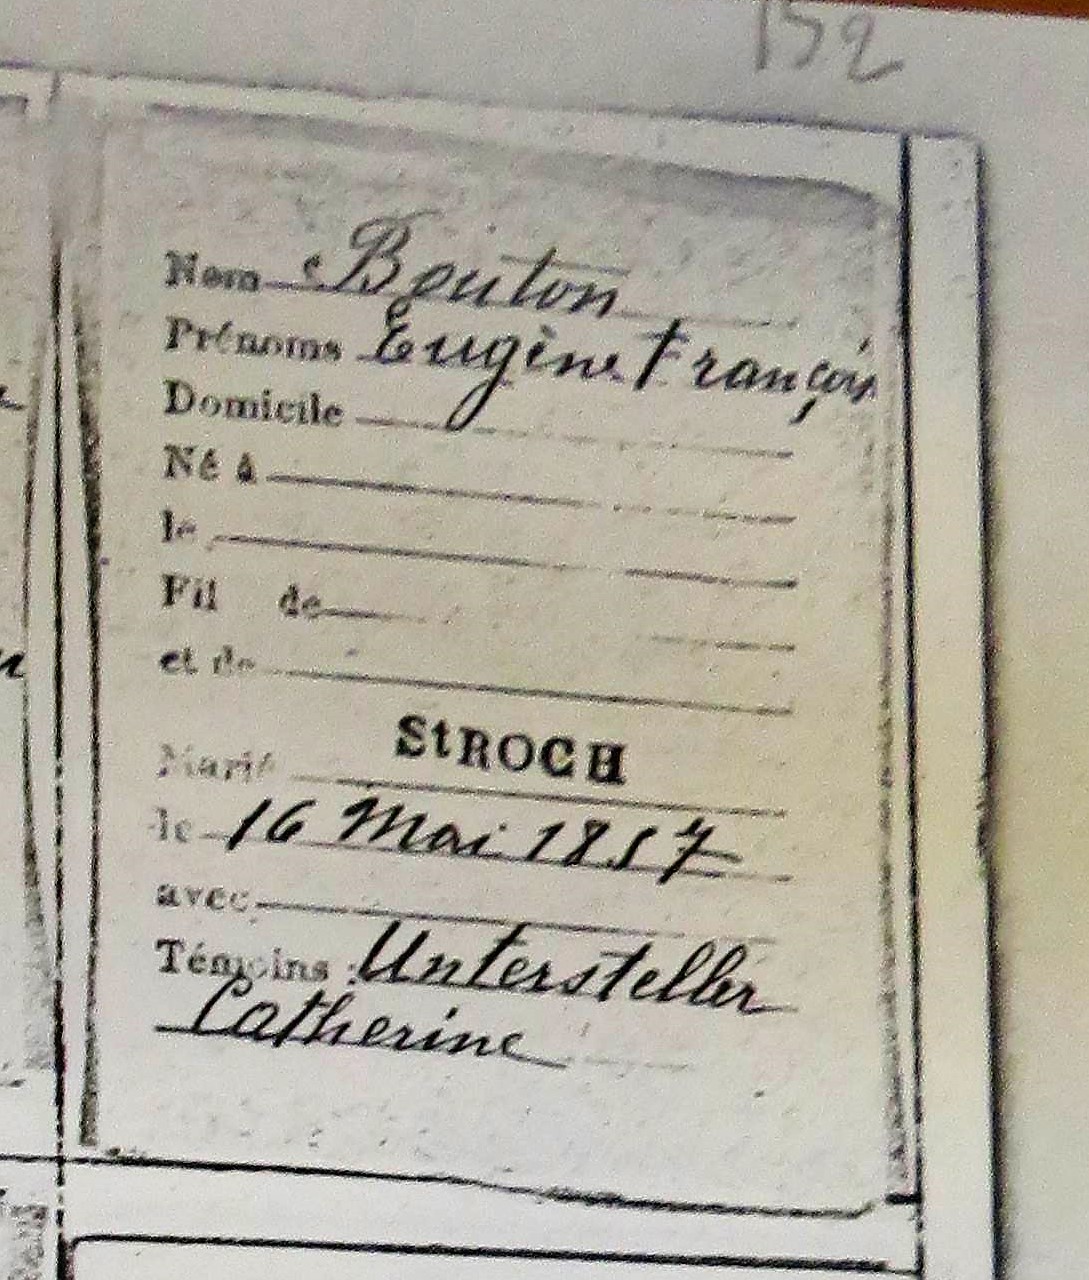 152
Nom Bouton
Prénoms Eugène François
Domicile
Né à
le
Fil de
et de
Marié St ROCH
le 16 Mai 1857
avec
Témoins : Untersteller
Catherine